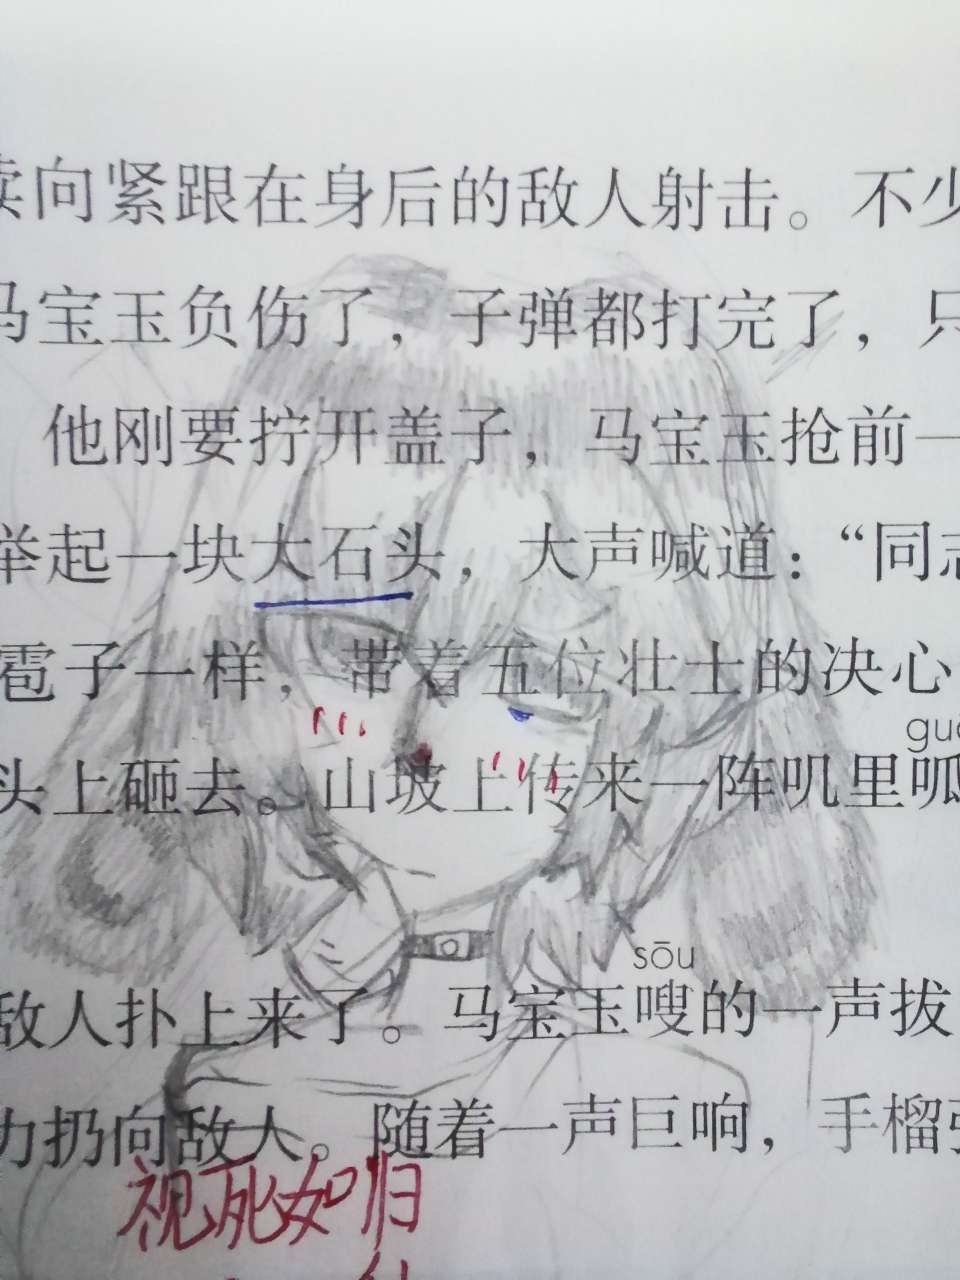 续向紧跟在身后的敌人射击。不少
马宝玉负伤了，子弹都打完了，只
他刚要拧开盖子，马宝玉抢前一
举起一块大石头，大声喊道：“同志
雹子一样，带着五位壮士的决心
guā
头上砸去。山坡上传来一阵叽里呱
sōu
敌人扑上来了。马宝玉嗖的一声拔
力扔向敌人。随着一声巨响，手榴弹
视死如归